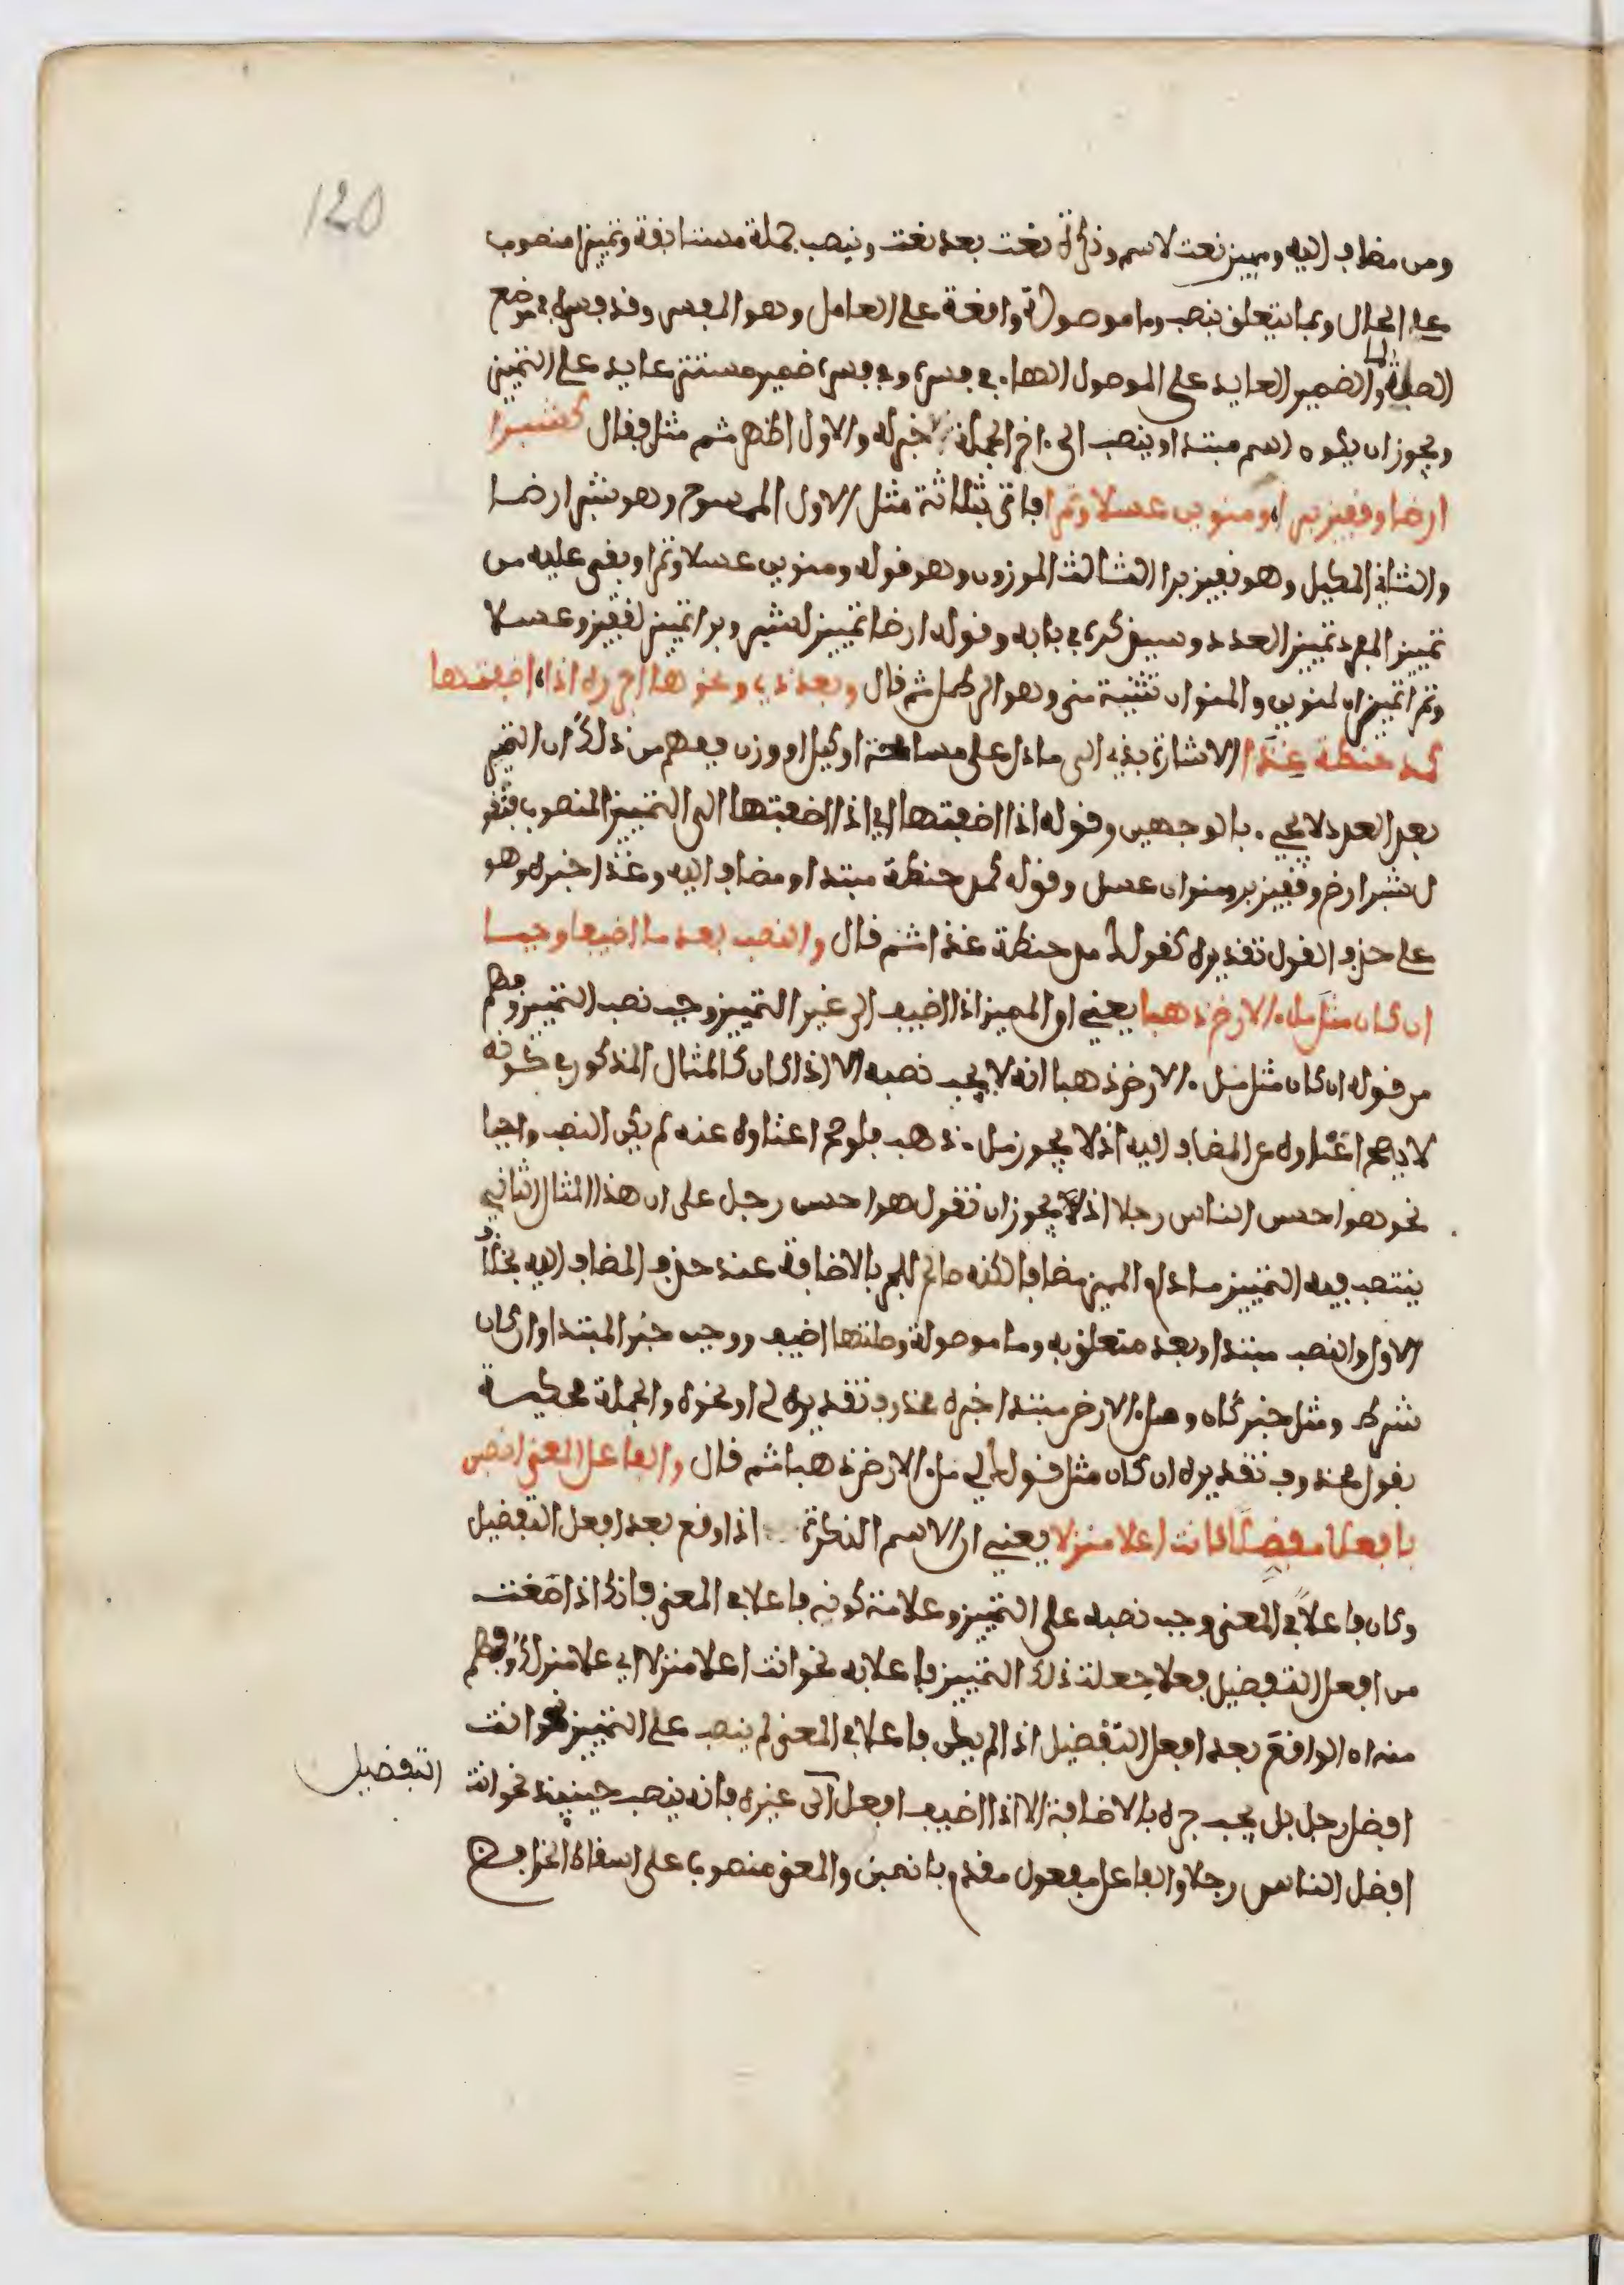 120
ومن مضاف اليه ومبين نعت لاسم ونكرة نعت بعد نعت وينصب جملة مستانفة وتمييزا منصوب
على الحال وبما يتعلق بنصب وما موصولة واقعة على العامل وهو المفسر وقد فسره في موضع
الصلة لما والضمير العايد على الموصول الهاء في فسره وفي فسره ضمير مستتر عايد على التمييز
ويجوز ان يكون اسم مبتدا وينصب الى ءاخر الجملة خبر له والاول اظهر ثم مثل فقال كشبر
ارضا وقفيز برا ومنوين عسلا وتمرا فاتى بثلاثة مثل الاول الممسوح وهو شبر ارضا
والثاني المكيل وهو قفيز برا الثالث الموزون وهو قوله ومنوين عسلا وتمرا وبقى عليه من
تمييز المفرد تمييز العدد وسيذكره في بابه وقوله ارضا تمييز لشبر وبرا تمييز لقفيز وعسلا
وتمرا تمييزان لمنوين والمنوان تثنية منى وهو الرطل ثم قال وبعد ذي ونحوها اجرره اذا اضفتها
كمد حنطة غذا الاشارة بذي الى ما دل على مساحة او كيل او وزن ففهم من ذلك ان التمييز
بعد العدد لا يجيء بالوجهين وقوله اذا اضفتها اي اذا اضفتها الى التمييز المنصوب فتقو
ل شبر ارض وقفيز بر ومنوان عسل وقوله كمد حنطة مبتدا ومضاف اليه وغذا خبره وهو
على حذف القول تقديره كقولك مد حنطة غذا ثم قال والنصب بعد ما اضيف وجبا
ان كان مثل ملء الارض ذهبا يعني ان المميز اذا اضيف الى غير التمييز وجب نصب التمييز وفهم
من قوله ان كان مثل ملء الارض ذهبا انه لا يجب نصبه الا اذا كان كالمثال المذكور في كونه
لا يصح اغناؤه عن المضاف اليه اذ لا يجوز ملء ذهب فلو صح اغناؤه عنه لم يكن النصب واجبا
نحو هو احسن الناس رجلا اذ يجوز ان تقول هو احسن رجل على ان هذا المثال الثاني
ينتصب فيه التمييز ما دام المميز مضافا لكنه صالح للجر بالاضافة عند حذف المضاف اليه بخلاف
الاول والنصب مبتدا وبعد متعلق به وما موصولة وصلتها اضيف ووجب خبر المبتدا وان كان
شرط ومثل خبر كان وملء الارض مبتدا خبره محذوف تقديره لي او نحوه والجملة محكية
بقول محذوف تقديره ان كان مثل قولك لي ملء الارض ذهبا ثم قال والفاعل المعنى انصبن
بافعلا مفضلا كانت اعلا منزلا يعني ان الاسم النكرة اذا وقع بعد افعل التفضيل
وكان فاعلا في المعنى وجب نصبه على التمييز وعلامة كونه فاعلا في المعنى فانك اذا صغت
من افعل التفضيل فعلا جعلت ذلك التمييز فاعلا به نحو انت اعلا منزلا اي علا منزلك وفهم
منه ان الواقع بعد افعل التفضيل اذا لم يكن فاعلا في المعنى لم ينصب على التمييز نحو انت
افضل رجل بل يجب جره بالاضافة الا اذا اضيف افعل الى غيره فانه ينصب حينيذ نحو انت
افضل الناس رجلا والفاعل مفعول مقدم بانصبن والمعنى منصوبا على اسقاط الخافض
التفضيل